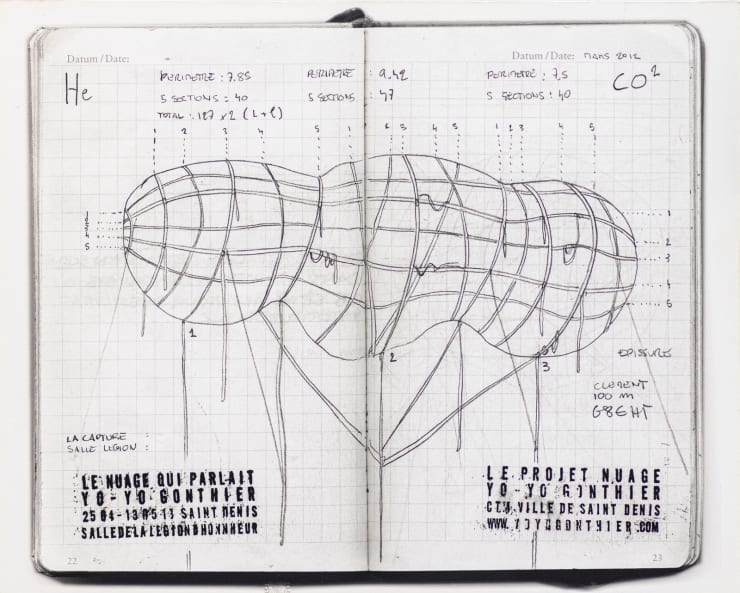 Datum / Date:
He
PERIMETRE : 7.85
5 SECTIONS : 40
TOTAL : 127 x 2 (L+l)
PERIMETRE : 9.42
5 SECTIONS : 47
Datum / Date: MARS 2012
PERIMETRE : 7,5
5 SECTIONS : 40
CO²
1 2 3 4 5 1 2 3 4 5 1 2 3 4 5
1
2
3
4
5
1
2
3
4
5
1
2
3
EPISSURES
CLEMENT
100 m
LA CAPTURE :
SALLE LEGION :
LE NUAGE QUI PARLAIT
YO-YO GONTHIER
SAINT DENIS
SALLE DE LA LEGION D HONNHEUR
22
LE PROJET NUAGE
YO-YO GONTHIER
VILLE DE SAINT DENIS
WWW.YOYOGONTHIER.COM
23